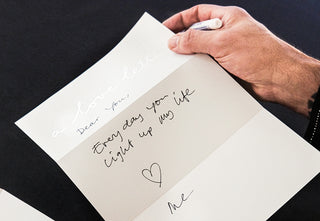 a love letter
Dear You,
Every day you
Light up my life
Me